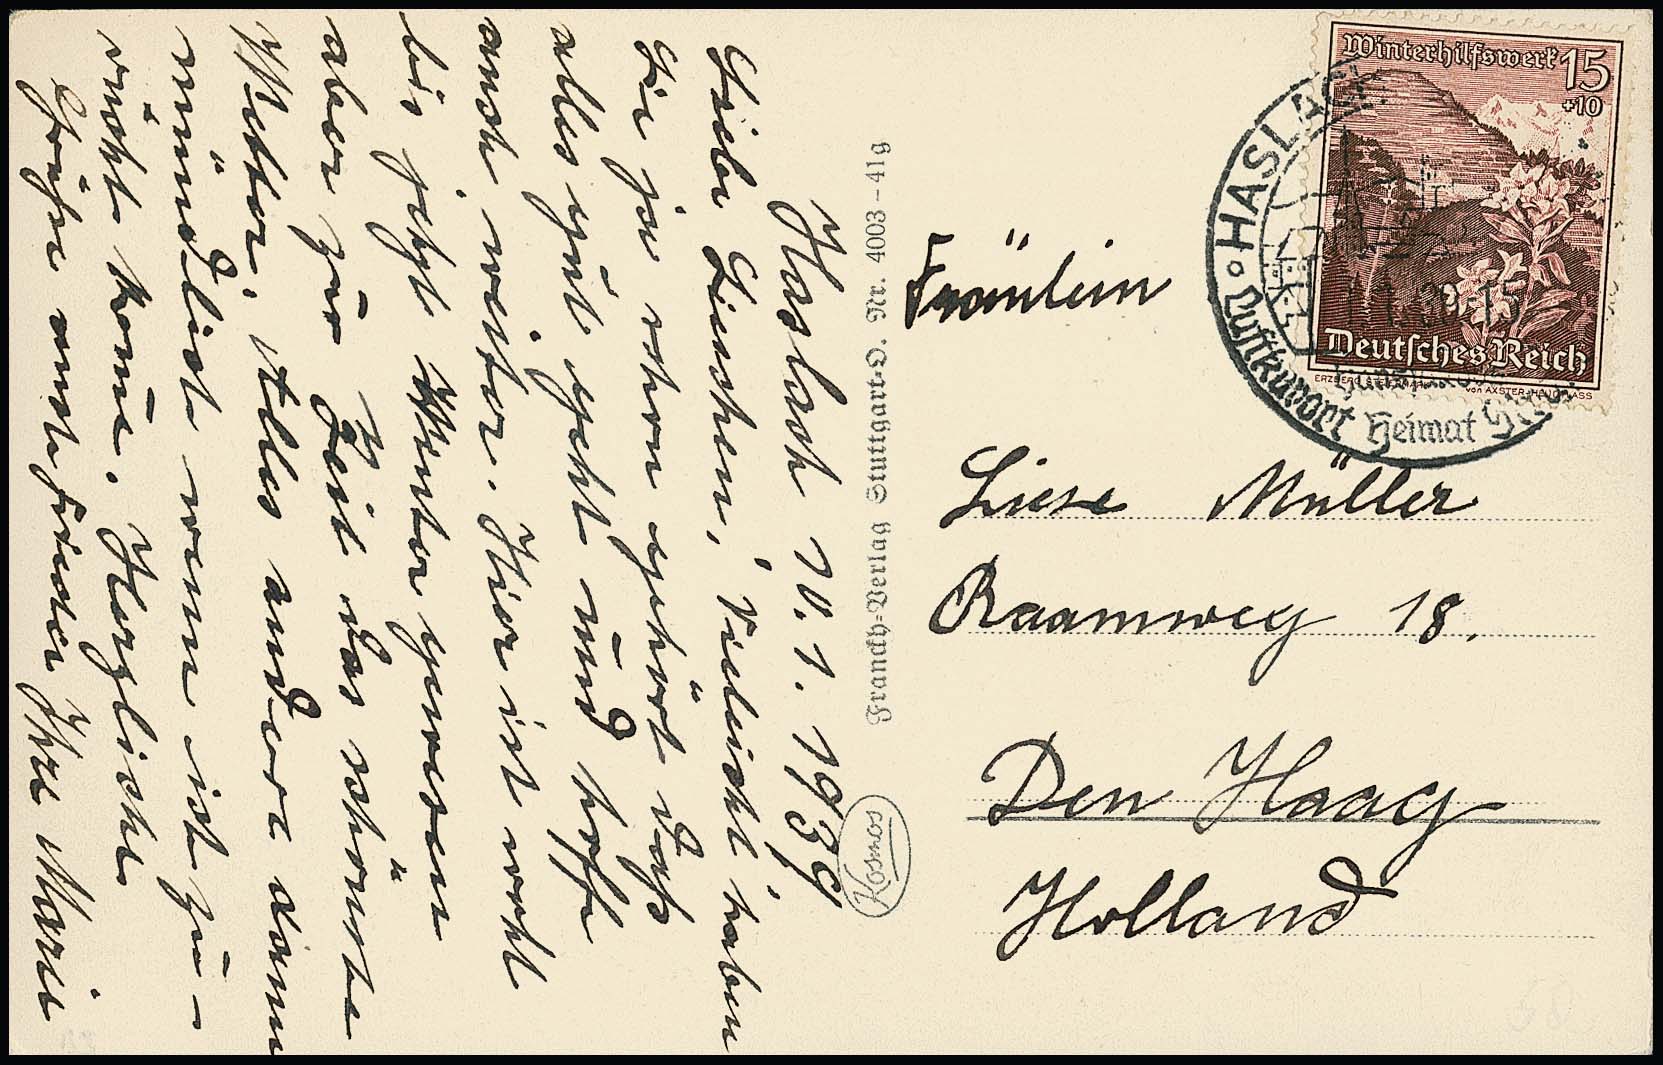 Haslach 10.1.1939
Liebe Lieschen, Vieleicht haben
Sie ja schon gehört daß
alles gut geht und hoffe
auch weiter. Hier ist wohl
bis jetzt Winter gewesen
aber zur Zeit das schönste
Wetter. Alles andere dann
mündlich wenn ich zu-
rück kome. Herzliche
Grüße auch
Ihre Marie
Franckh-Verlag Stuttgart-O. Nr. 4003-41g
Kosmos
Winterhilfswerk 15
+10
Deutsches Reich
ERZBERG STEIERMARK von AXSTER-HEUDTLASS
HASLACH
Luftkurort Heimat
Fräulein
Liese Müller
Raamweg 18.
Den Haag
Holland